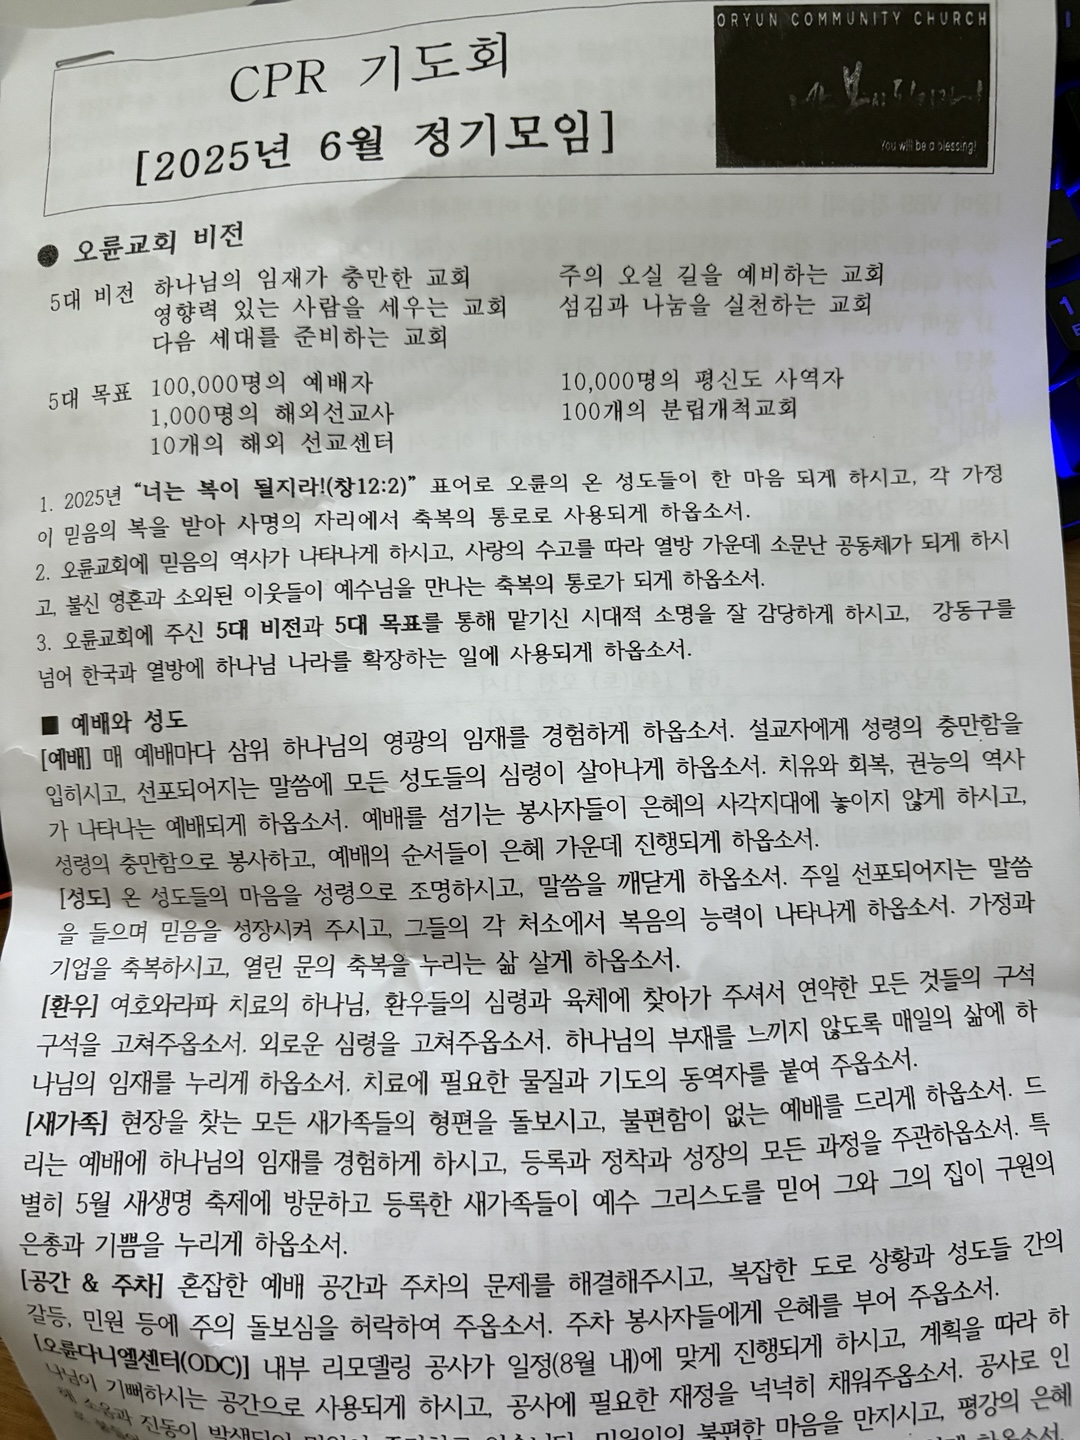 ORYUN COMMUNITY CHURCH
You will be a blessing!
CPR 기도회
[2025년 6월 정기모임]
● 오륜교회 비전
5대 비전 하나님의 임재가 충만한 교회 주의 오실 길을 예비하는 교회
영향력 있는 사람을 세우는 교회 섬김과 나눔을 실천하는 교회
다음 세대를 준비하는 교회
5대 목표 100,000명의 예배자 10,000명의 평신도 사역자
1,000명의 해외선교사 100개의 분립개척교회
10개의 해외 선교센터
1. 2025년 “너는 복이 될지라!(창12:2)” 표어로 오륜의 온 성도들이 한 마음 되게 하시고, 각 가정
이 믿음의 복을 받아 사명의 자리에서 축복의 통로로 사용되게 하옵소서.
2. 오륜교회에 믿음의 역사가 나타나게 하시고, 사랑의 수고를 따라 열방 가운데 소문난 공동체가 되게 하시
고, 불신 영혼과 소외된 이웃들이 예수님을 만나는 축복의 통로가 되게 하옵소서.
3. 오륜교회에 주신 5대 비전과 5대 목표를 통해 맡기신 시대적 소명을 잘 감당하게 하시고, 강동구를
넘어 한국과 열방에 하나님 나라를 확장하는 일에 사용되게 하옵소서.
■ 예배와 성도
[예배] 매 예배마다 삼위 하나님의 영광의 임재를 경험하게 하옵소서. 설교자에게 성령의 충만함을
입히시고, 선포되어지는 말씀에 모든 성도들의 심령이 살아나게 하옵소서. 치유와 회복, 권능의 역사
가 나타나는 예배되게 하옵소서. 예배를 섬기는 봉사자들이 은혜의 사각지대에 놓이지 않게 하시고,
성령의 충만함으로 봉사하고, 예배의 순서들이 은혜 가운데 진행되게 하옵소서.
[성도] 온 성도들의 마음을 성령으로 조명하시고, 말씀을 깨닫게 하옵소서. 주일 선포되어지는 말씀
을 들으며 믿음을 성장시켜 주시고, 그들의 각 처소에서 복음의 능력이 나타나게 하옵소서. 가정과
기업을 축복하시고, 열린 문의 축복을 누리는 삶 살게 하옵소서.
[환우] 여호와라파 치료의 하나님, 환우들의 심령과 육체에 찾아가 주셔서 연약한 모든 것들의 구석
구석을 고쳐주옵소서. 외로운 심령을 고쳐주옵소서. 하나님의 부재를 느끼지 않도록 매일의 삶에 하
나님의 임재를 누리게 하옵소서. 치료에 필요한 물질과 기도의 동역자를 붙여 주옵소서.
[새가족] 현장을 찾는 모든 새가족들의 형편을 돌보시고, 불편함이 없는 예배를 드리게 하옵소서. 드
리는 예배에 하나님의 임재를 경험하게 하시고, 등록과 정착과 성장의 모든 과정을 주관하옵소서. 특
별히 5월 새생명 축제에 방문하고 등록한 새가족들이 예수 그리스도를 믿어 그와 그의 집이 구원의
은총과 기쁨을 누리게 하옵소서.
[공간 & 주차] 혼잡한 예배 공간과 주차의 문제를 해결해주시고, 복잡한 도로 상황과 성도들 간의
갈등, 민원 등에 주의 돌보심을 허락하여 주옵소서. 주차 봉사자들에게 은혜를 부어 주옵소서.
[오륜다니엘센터(ODC)] 내부 리모델링 공사가 일정(8월 내)에 맞게 진행되게 하시고, 계획을 따라 하
나님이 기뻐하시는 공간으로 사용되게 하시고, 공사에 필요한 재정을 넉넉히 채워주옵소서. 공사로 인
해 소음과 진동이 불편한 마음을 만지시고, 평강의 은혜